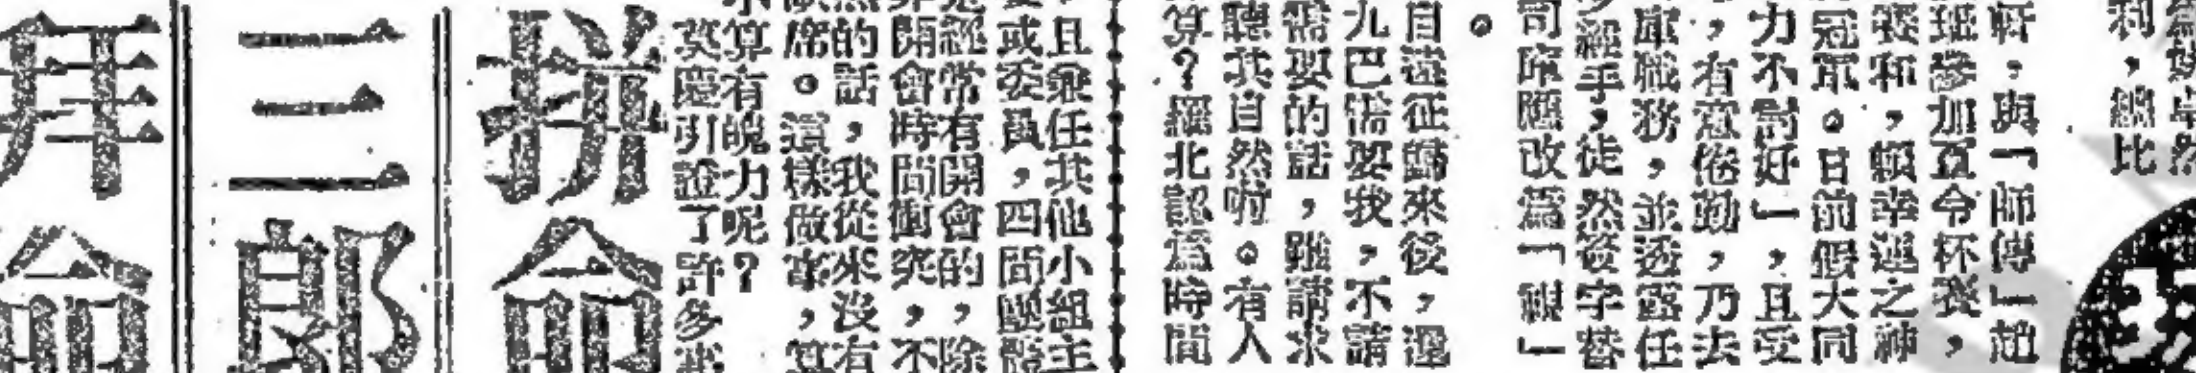 利，總比
軒，與「師傅」趙
班參加直令杯賽，
賽和，頗幸運之神
冠軍。日前假大同
力不討好」，且受
，有意倦勤，乃去
庫職務，並透露任
經手，徒然簽字替
司庫應改爲「視」
。
自遠征歸來後，還
九巴需要我，不請
需要的話，雖請求
聽其自然啦。有人
算？羅北認爲時間
且兼任其他小組主
或委員，四間團體
經常有開會的，除
開會時間衝突，不
的話，我從來沒有
席。這樣做事，算
算有魄力呢？
莫慶引證了許多事
拼命
三郎
拜命